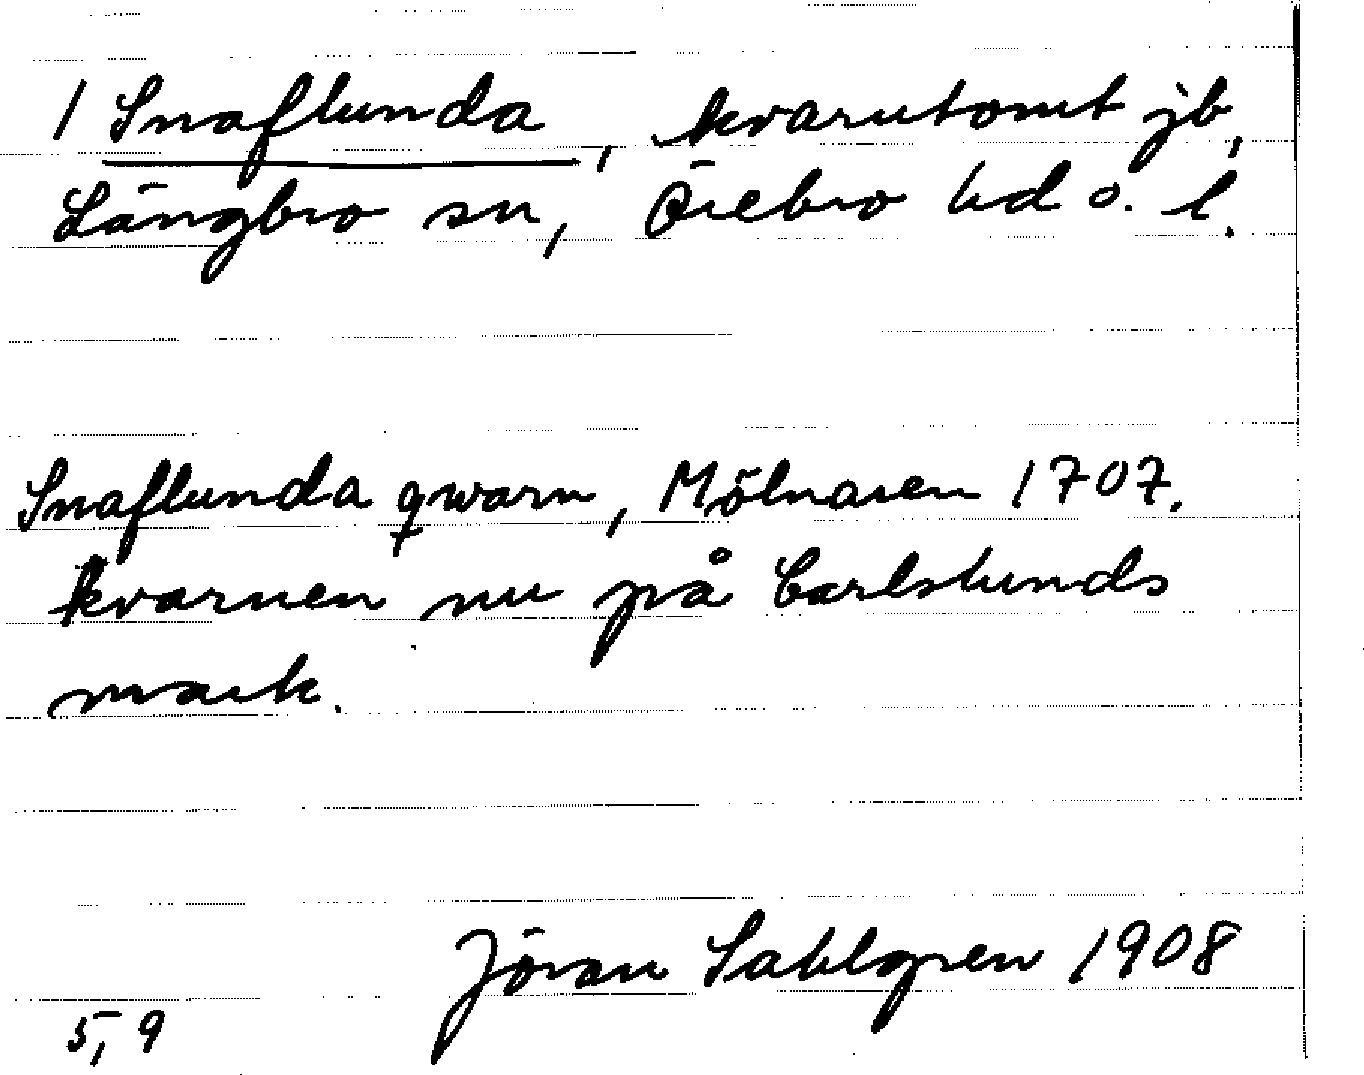 1 Snaflunda, kvarntomt jb,
Längbro sn, Örebro hd o. l.
Snaflunda qwarn, Mölnaren 1707.
kvarnen nu på Carlslunds
mark.
Jöran Sahlgren 1908
5,9